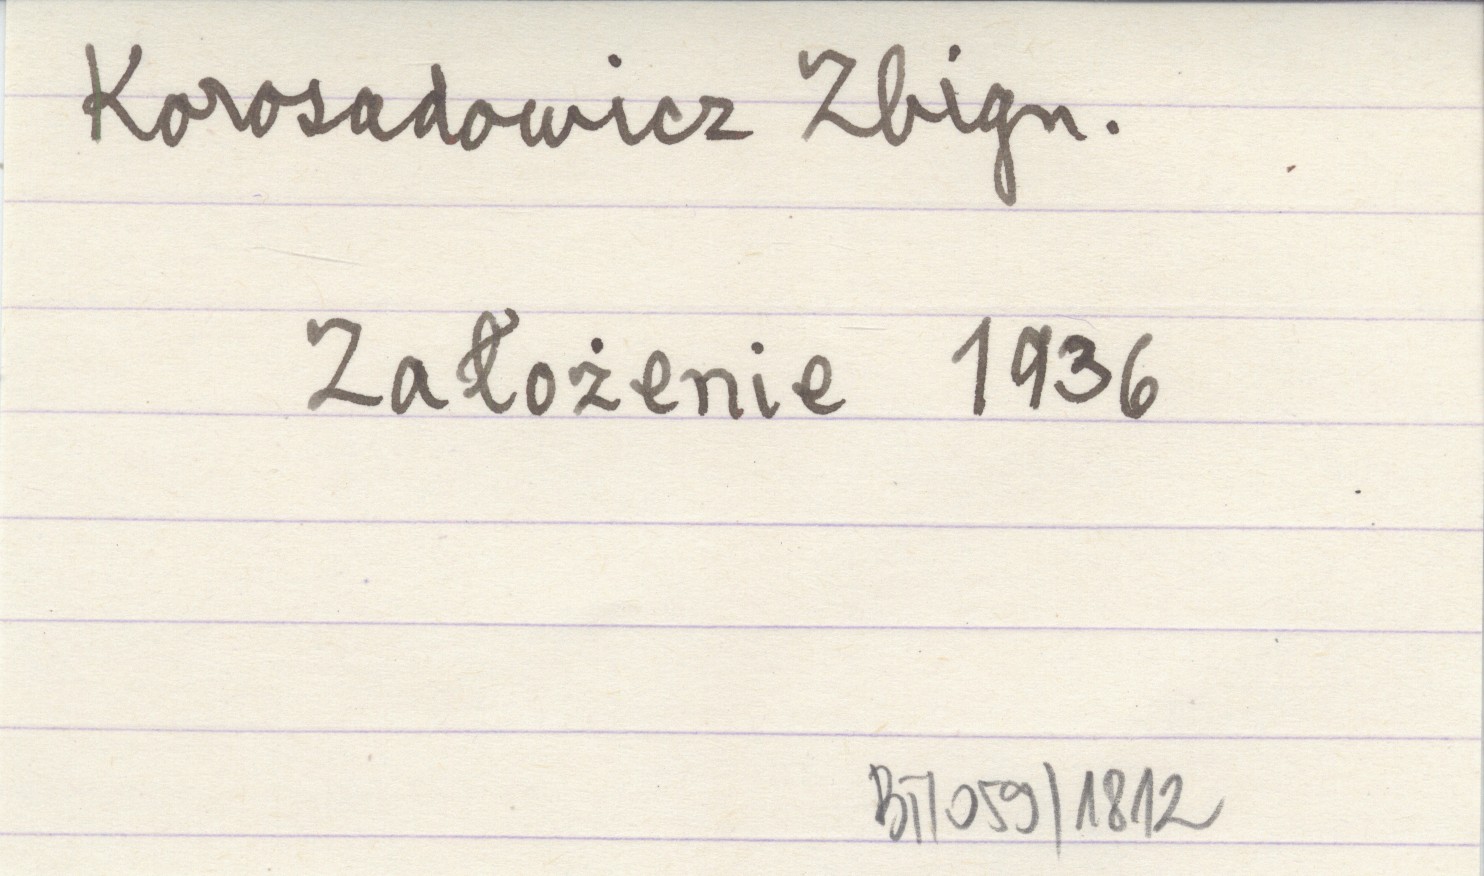 Korosadowicz Zbign.
Założenie 1936
BT/059/1812